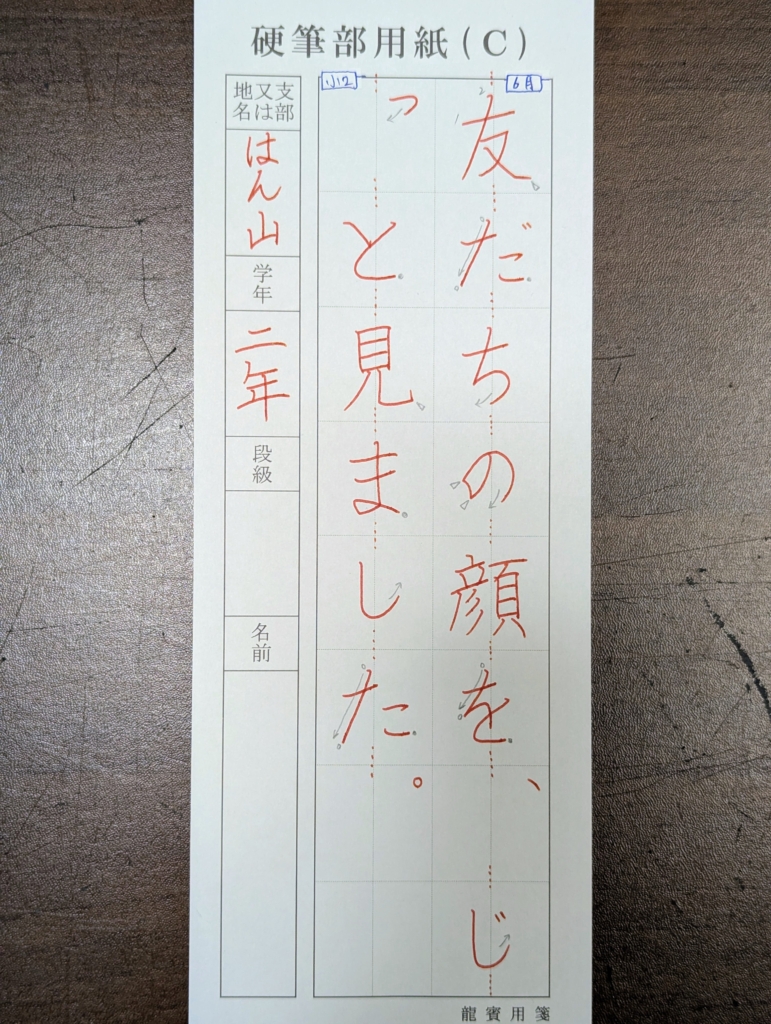 硬筆部用紙(C)
6月
友だちの顔を、じ
小2
っと見ました。
支部又は地名
はん山
学年
二年
段級
名前
龍賓用箋